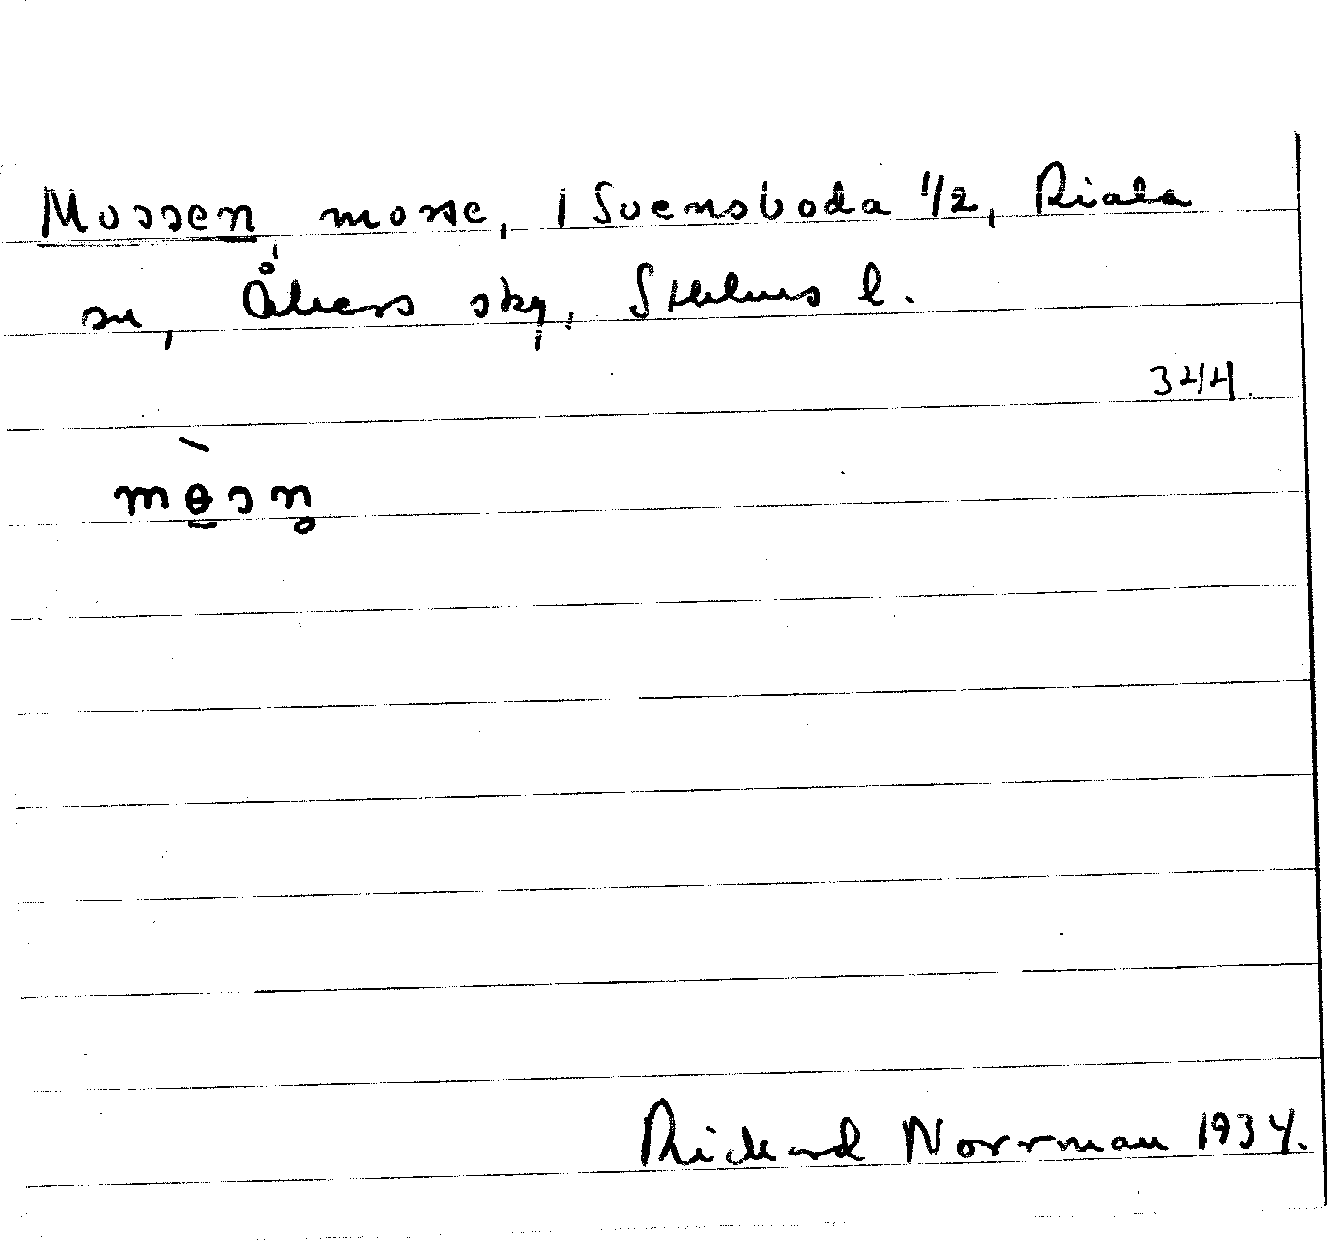 Mossen, mosse, i Svensboda 1/2, Riala
sn, Åkers sky, Sthlms l.
3244.
mɵ̠̀sn̥
Rickard Norrman 1934.